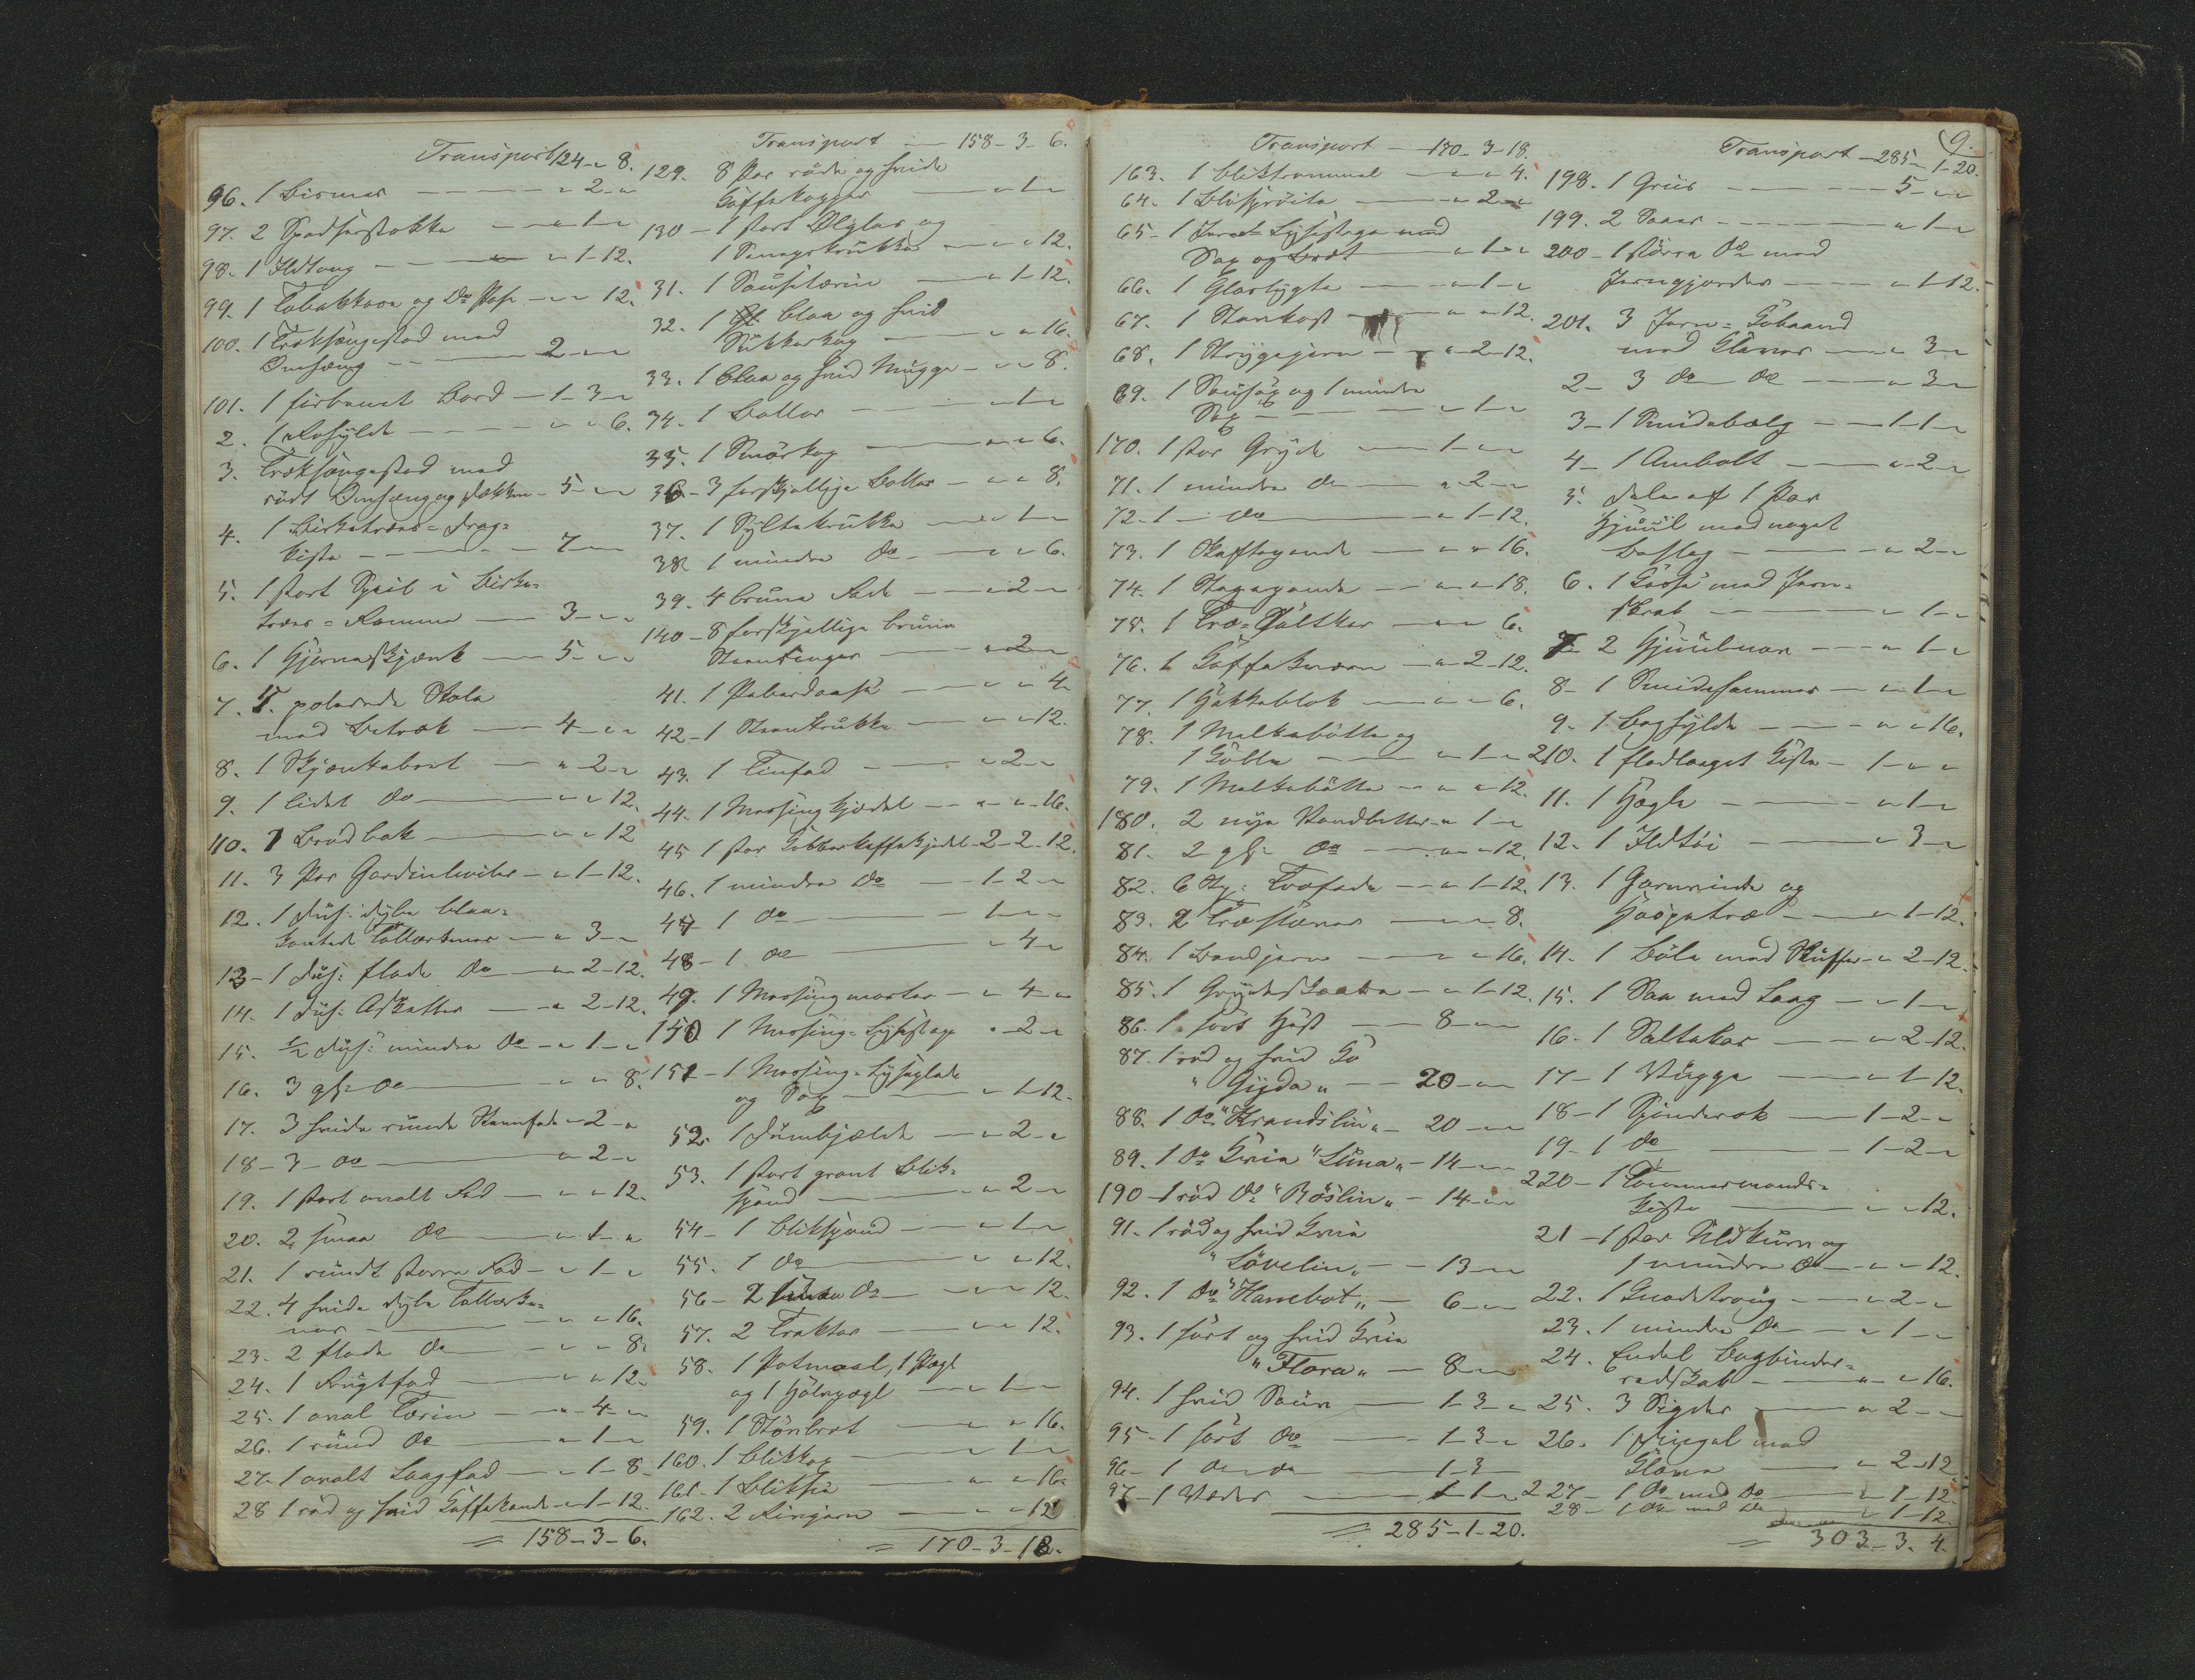 Transport 124 - " 8.
96. 1 Bismar - " 2 - "
97. 2 Spadserstokke - " 1 - "
98. 1 Ildtang - " 1 - 12.
99. 1 Tobakkaa og Do Pose - " " 12.
100. 1 Træksengestad med
Omhæng - 2 - " "
101. 1 firkanet Bord - 1 - 3 - "
2. 1 Roehylde - " " 6.
3. Træksengestad med
rødt Omhæng og Dækken - 5 - " "
4. 1 Birketræes = Drag=
kiste - 7 - " "
5. 1 stort Speil i Birke=
træes = Ramme - 3 - " "
6. 1 Hjørneskjænk - 5 - " "
7. 5. polerede Stole
med Betræk - 4 - " "
8. 1 Skjænkebord - " 2 - "
9. 1 lidet do - " " 12.
110. 1 Brødbak - " " 12
11. 3 Par Gardinhviler - " 1 - 12.
12. 1 dus: dybe blaa=
kantede Tallerkener - " 3 - "
13 - 1 dus: flade Do - " 2 - 12.
14. 1 dus: Asketter - " 2 - 12.
15. ½ dus: mindre Do - " 1 - "
16. 3 gl: do - " " 8.
17. 3 hvide runde Steenfade - " 2 - "
18 - 3 - do - " 2 - "
19. 1 stort ovalt Fad - " " 12.
20. 2 smaa do - " 1 - "
21. 1 rundt større Fad - " 1 - "
22. 4 hvide dybe Tallerke=
ner - " " 16.
23. 2 flade do - " " 8.
24. 1 Frugtfad - " " 12.
25. 1 oval Terin - " 4 - "
26. 1 rund do - " 1 - "
27. 1 ovalt Laagfad - " 1 - 8
28 1 rød og hvid Kaffekande - " 1 - 12.
= 158 - 3 - 6.
Transport - 158 - 3 - 6.
129. 8 Par røde og hvide
Kaffekopper - " 1 - "
130 - 1 stort Ølglas og
1 Senepskrukke - " " 12.
31. 1 Sauseterin - " 1 - 12.
32. 1 blaa og hvid
Sukkerkop - " " 16.
33. 1 blaa og hvid Mugge - " " 8.
34. 1 Boller - " 1 - "
35. 1 Smørkop - " " 6.
36 - 3 forskjellige Boller - " " 8.
37. 1 Syltekrukke - " 1 - "
38. 1 mindre Do - " " 6.
39. 4 brune Fade - " 2 - "
140 - 8 forskjellige brune
Steentøuger - " 2 - "
41. 1 Peberdaase - " " 4
42 - 1 Steenkrukke - " " 12.
43. 1 Tinfad - " 2 - "
44. 1 Messingkjedel - " " 16.
45 1 stor Kobberkaffekjedel - 2 - 2 - 12.
46. 1 mindre Do - 1 - 2 - "
47 1 do - 1 - " "
48 - 1 do - " 4 - "
49. 1 Messingmorter - " 4 - "
150 1 Messing = Lysestage " - 2 - "
151 - 1 Messing = Lyseplade
og Sax - " 1 - 12.
52. 1 Dumbjælde - " 2 - "
53. 1 stort grønt Blik=
spand - " 2 - "
54 - 1 Blikspand - " 1 - "
55. 1 do - " " 12.
56 - 2 do - " " 12.
57. 2 Trakter - " " 12.
58. 1 Potmaal, 1 Pægl
og 1 Halvpægl - " 1 - "
59. 1 - " " 16.
160. 1 Blikkop - " 1 - "
161 - 1 Bliksie - " " 16
162. 2 - " " 12
= 170 - 3 - 18.
Transport - 170 - 3 - 18.
163. 1 Bliktrommel - " " 4.
64. 1 Bliksprøite - " 2 - "
65 - 1 Jern = Lysestage med
Sax og Bræt - " 1 - "
66. 1 Glaslygte - " 1 - "
67. 1 Steenkost - " " 12.
68. 1 Strygejern - " 2 - 12.
69. 1 Sausax og 1 mindre
Sax - " 1 - "
170. 1 stor Gryde - 1 - " "
71. 1 mindre do - " 2 - "
72 - 1 - do - " 1 - 12.
73. 1 Skaftepande - " " 16.
74. 1 Stegepande - " " 18.
75. 1 Træ = Saltkar - " " 6.
76. 1 Kaffekværn - " 2 - 12.
77. 1 Hakkeblok - " " 6.
78. 1 Melkebøtte og
1 Kolle - " 1 - "
79. 1 Melkebøtte - " " 12.
180. 2 nye Vandbøtter - " 1 - "
81. 2 gl: do - " " 12.
82. 6 Stk: Træfade - " 1 - 12.
83. 2 Træstøver - " " 8.
84. 1 Brandjern - " " 16.
85. 1 Grydeskrabe - " 1 - 12.
86. 1 sort Hest - 8 - " "
87. 1 rød og hvid Ko
" Gyda " - 20 - " "
88. 1 Do " Krandslin " - 20 - " "
89. 1 Do Kvie " Luna " - 14 - " "
190 - 1 rød Do " Röslin " - 14 - " "
91. 1 rød og hvid Kvie
" Lövelin " - 13 - " "
92. 1 Do " Harrebot " - 6 - " "
93. 1 sort og hvid Kvie
" Flora " - 8 - " "
94. 1 hvid Souv - 1 - 3 - "
95 - 1 sort do - 1 - 3 - "
96 - 1 do do - 1 - 3
97 - 1 Væder - 1 - 1 - "
= 285 - 1 - 20.
9.
Transport - 285 - 1 - 20.
198. 1 Griis - 5 - " "
199. 2 Saaer - " 1 - "
200 - 1 større Do med
Jerngjorder - " 1 - 12.
201. 3 Jern = Kobaand
med Klaver - " 3 - "
2 - 3 do do - " 3 - "
3 - 1 Smidebælg - 1 - 1 - "
4 - 1 Ambolt - " 2 - "
5. Dele af 1 Par
Hjuul med noget
Beslag - " 2 - "
6. 1 Kasse med Jern=
skrab - " 1 - "
7 2 Hjuulnav - " 1 - "
8 - 1 Smidehammer - " 1 - "
9 - 1 Boghylde - " " 16.
210. 1 fladlaaget Kiste - 1 - " "
11. 1 Hægle - " 1 - "
12. 1 Ildtøi - " 3 - "
13. 1 Garnvinde og
Haspetræ - " 1 - 12.
14. 1 Bøle med Skuffer - " 2 - 12.
15. 1 Saa med Laag - " 1 - "
16. 1 Saltekar - " 2 - 12.
17 - 1 Vugge - " 1 - 12.
18 - 1 Spinderok - 1 - 2 - "
19 - 1 do - 1 - 2 - "
220 - 1 Tømmermands=
Kiste - " " 12.
21 - 1 stor Uldkurv og
1 mindre do - " " 12.
22. 1 Knadetroug - " 2 - "
23. 1 mindre do - " 1 - "
24. Endel Bogbinder=
redskab - " " 16.
25. 3 Sigder - " 2 - "
26. 1 med
Klave - " 2 - 12
227 - 1 do med do - " 1 - 12.
28 - 1 do med do " 1 - 12.
= 303 - 3. 4.